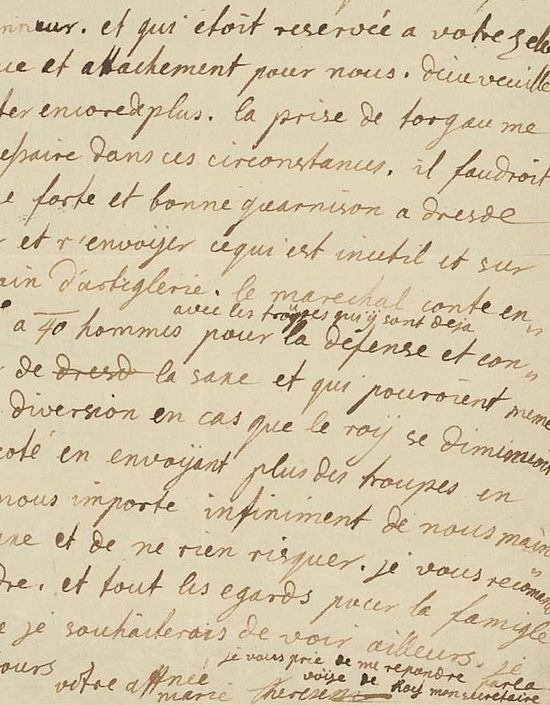 nneur. et qui etoit reservée a votre zele
ue et attachement pour nous. dieu veuille
ter encore de plus. la prise de torgau me
essaire dans ces circonstances. il faudroit
e forte et bonne guarnison a dresde
r et r'envoÿer ce qui est inutil et sur
ain d'artiglerie. le marechal conte en
avec les troupes qui ÿ sont deja
a 40 hommes pour la defense et con
r de dresd la saxe et qui pouroient meme
diversion en cas que le roÿ se diminue
coté en envoÿant plus des troupes en
nous importe infiniment de nous main
axe et de ne rien risquer. je vous recomen
dre. et tout les egards pour la famigle
e je souhaiterois de voir ailleurs. je
je vous prie de me repondre par la
ours votre affnée voije de Koch mon secretaire
marie Therese